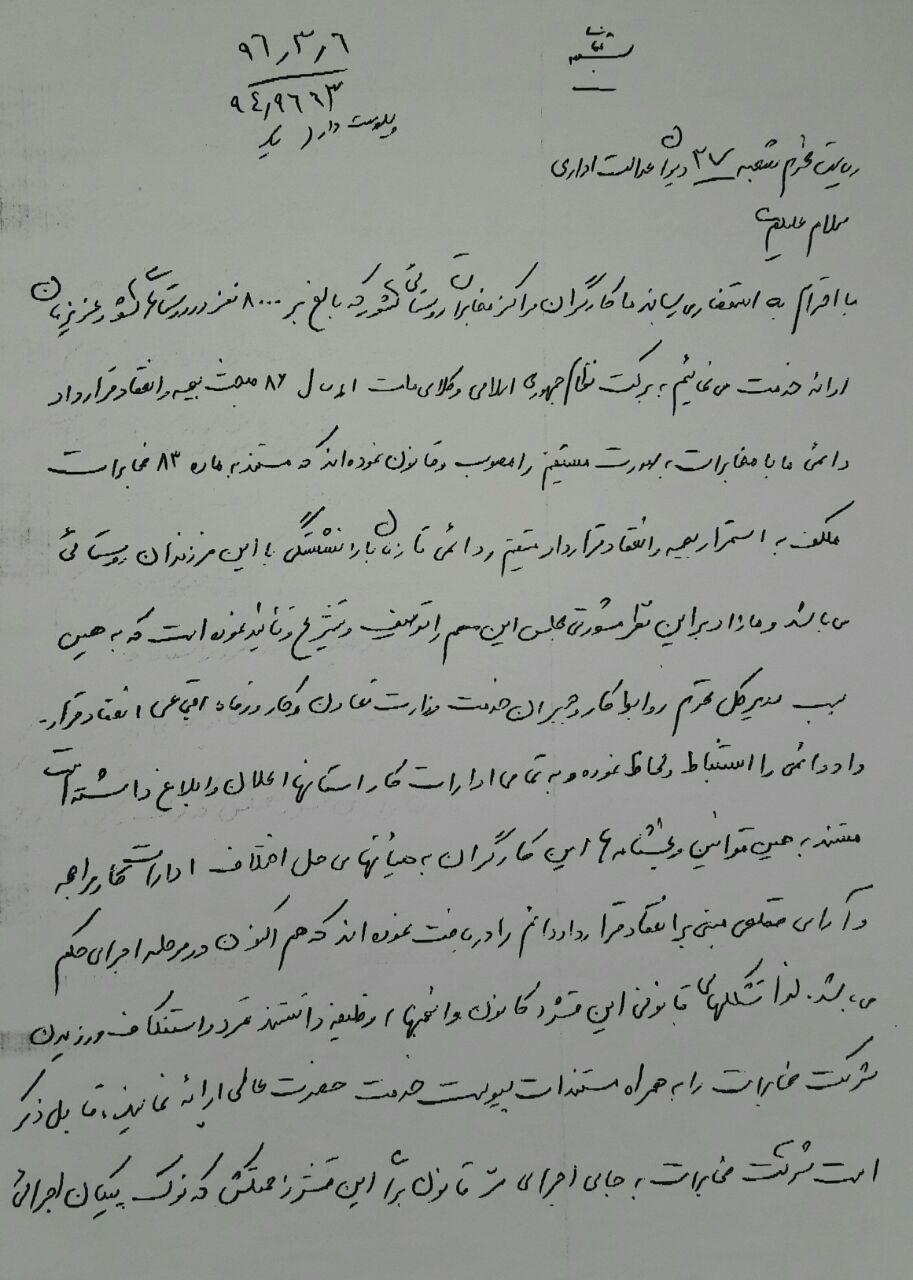 بسمه تعالی
۹۶٫۳٫۶
۹۴٫۹۶۶۳
پیوست دارد
ریاست محترم شعبه ۳۷ دیوان عدالت اداری
سلام علیکم
با احترام به استحضار می‌رساند ما کارگران مراکز مخابرات روستائی کشور که بالغ بر ۸۰۰۰ نفر در روستاهای کشور عزیزمان
ارائه خدمت می نمائیم به برکت نظام جمهوری اسلامی وکلای ملت از سال ۸۶ مبحث بیمه و انعقاد قرارداد
دائمی ما با مخابرات به صورت مستقیم را مصوب و قانون نموده‌اند که مستند به ماده ۸۳ مخابرات
مکلف به استمرار بیمه و انعقاد قرارداد مستقیم و دائمی تا زمان بازنشستگی با این فرزندان روستائی
می باشد و مازاد بر این نظر مشورتی مجلس این مهم را توصیف و تشریح و تائید نموده است که به همین
سبب مدیرکل محترم روابط کار و جبران خدمت وزارت تعاون و کار و رفاه اجتماعی انعقاد قرار-
داد دائمی را استنباط و لحاظ نموده و به تمامی ادارات کار استانها اعلان و ابلاغ داشته است
مستند به همین قوانین و بخشنامه ها این کارگران به هیأتهای حل اختلاف ادارات کار مراجعه
و آرای قطعی مبنی بر انعقاد قرارداد دائم را دریافت نموده اند که هم اکنون در مرحله اجرای حکم
می باشد. لذا تشکلهای قانونی این قشر، کانون و انجمنها، وظیفه دانستند تمرد و استنکاف ورزیدن
شرکت مخابرات را به همراه مستندات پیوست خدمت حضرت عالی ارائه نمایند، قابل ذکر
است شرکت مخابرات به جای اجرای مر قانون برای این قشر زحمتکش که نوک پیکان اجرائی